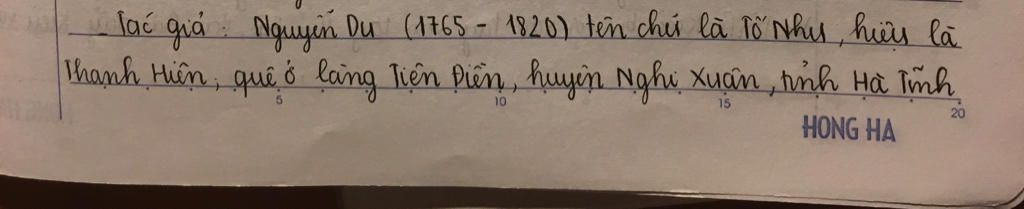 - Tác giả: Nguyễn Du (1765 - 1820) tên chữ là Tố Như, hiệu là
Thanh Hiên, quê ở làng Tiên Điền, huyện Nghi Xuân, tỉnh Hà Tĩnh.
5 10 15 20
HONG HA